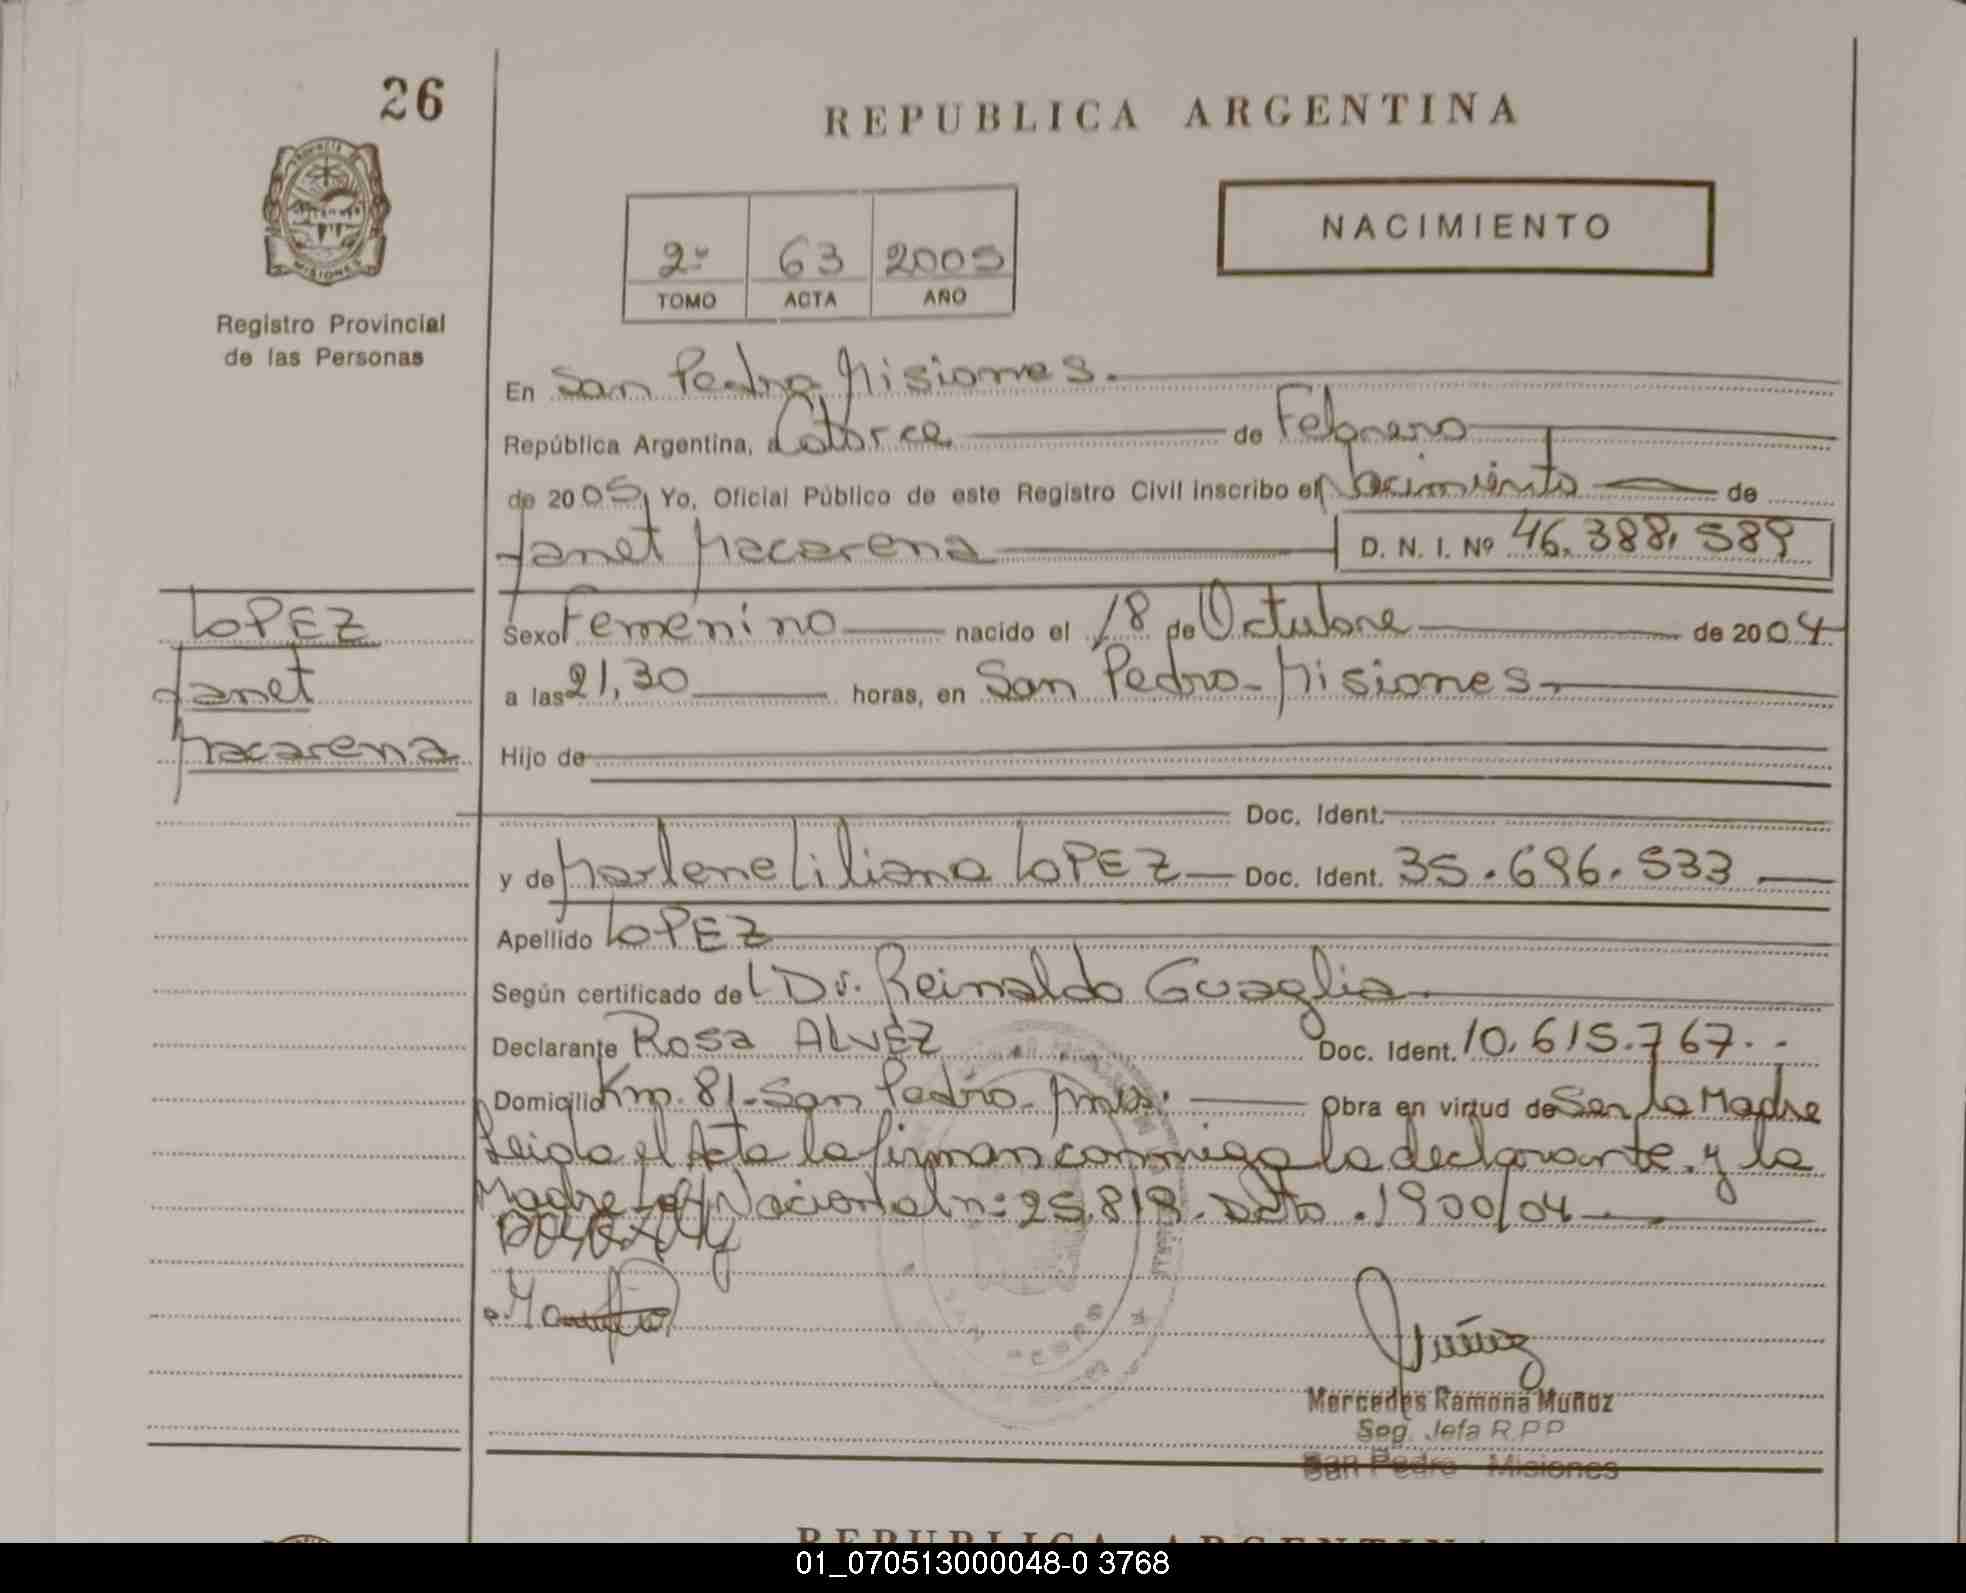 26
REPUBLICA ARGENTINA
PROVINCIA DE
MISIONES
NACIMIENTO
2º 63 2005
TOMO ACTA AÑO
Registro Provincial
de las Personas
En San Pedro, Misiones.
República Argentina, a Catorce de Febrero
de 2005, Yo, Oficial Público de este Registro Civil inscribo el Nacimiento de
Janet Macarena D. N. I. Nº 46.388.589
LOPEZ
Janet
Macarena
Sexo Femenino nacido el 18 de Octubre de 2004
a las 21,30 horas, en San Pedro - Misiones.
Hijo de
Doc. Ident.
y de Marlene Liliana LOPEZ Doc. Ident. 35.696.533
Apellido LOPEZ
Según certificado del Dr. Reinaldo Guaglia
Declarante Rosa ALVEZ Doc. Ident. 10.615.767.
Domicilio Km. 81 - San Pedro - Mnes. Obra en virtud de Ser la Madre
Leida el Acta la firman conmigo la declarante y la
Madre Ley Nacional n: 25.819. Dcto. 1900/04
Muñoz
Mercedes Ramona Muñoz
Seg. Jefa R.P.P
San Pedro - Misiones
REPUBLICA ARGENTINA
01_070513000048-0 3768